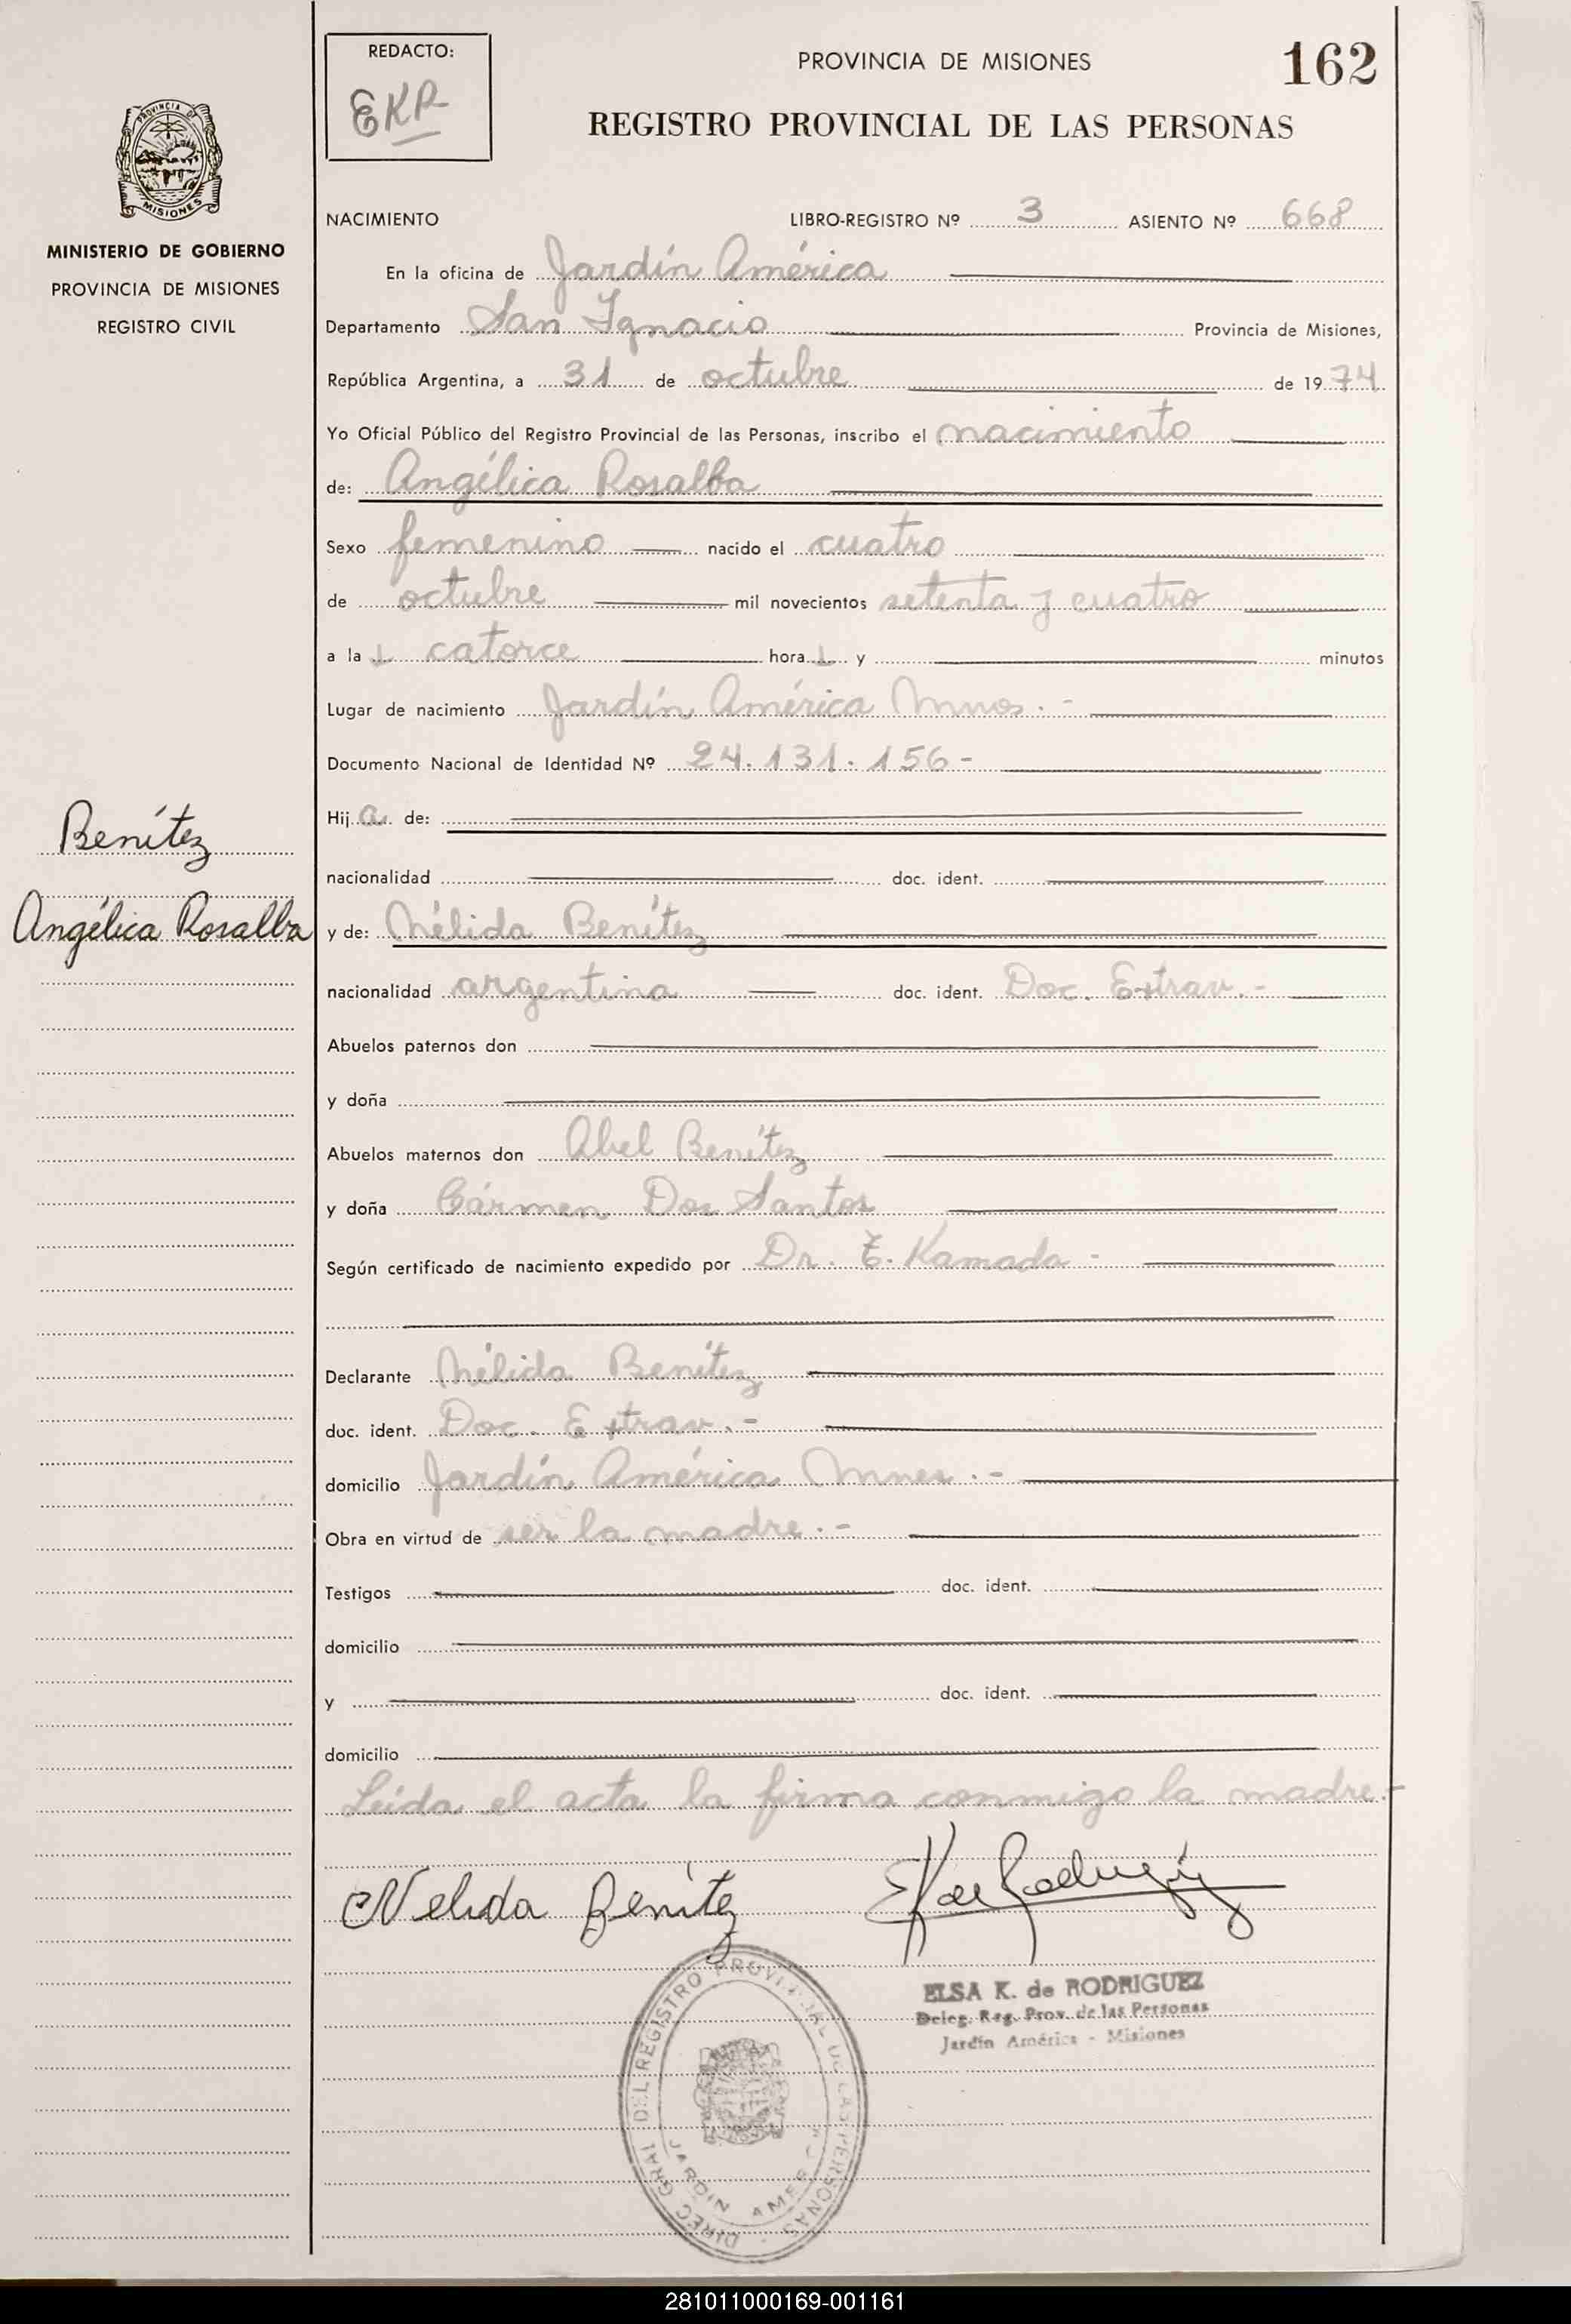 REDACTO:
EKR
PROVINCIA DE MISIONES
162
REGISTRO PROVINCIAL DE LAS PERSONAS
PROVINCIA DE
MISIONES
MINISTERIO DE GOBIERNO
PROVINCIA DE MISIONES
REGISTRO CIVIL
NACIMIENTO LIBRO-REGISTRO Nº 3 ASIENTO Nº 668
En la oficina de Jardín América
Departamento San Ignacio Provincia de Misiones,
República Argentina, a 31 de octubre de 1974
Yo Oficial Público del Registro Provincial de las Personas, inscribo el nacimiento
de: Angélica Rosalba
Sexo femenino nacido el cuatro
de octubre mil novecientos setenta y cuatro
a la catorce hora y minutos
Lugar de nacimiento Jardín América Mnes. -
Documento Nacional de Identidad Nº 24.131.156-
Hija de:
nacionalidad doc. ident.
Benítez
Angélica Rosalba
y de: Nélida Benítez
nacionalidad argentina doc. ident. Doc. Extrav.-
Abuelos paternos don
y doña
Abuelos maternos don Abel Benítez
y doña Cármen Dos Santos
Según certificado de nacimiento expedido por Dr. E. Kamada -
Declarante Nélida Benítez
doc. ident. Doc. Extrav.-
domicilio Jardín América Mnes.-
Obra en virtud de ser la madre.-
Testigos doc. ident.
domicilio
y doc. ident.
domicilio
Leída el acta la firma conmigo la madre.-
Nelida Benítez
EK de Rodriguez
ELSA K. de RODRIGUEZ
Deleg. Reg. Prov. de las Personas
Jardín América - Misiones
DIREC. GRAL DEL REGISTRO PROVINCIAL DE LAS PERSONAS
JARDIN AMERICA
281011000169-001161